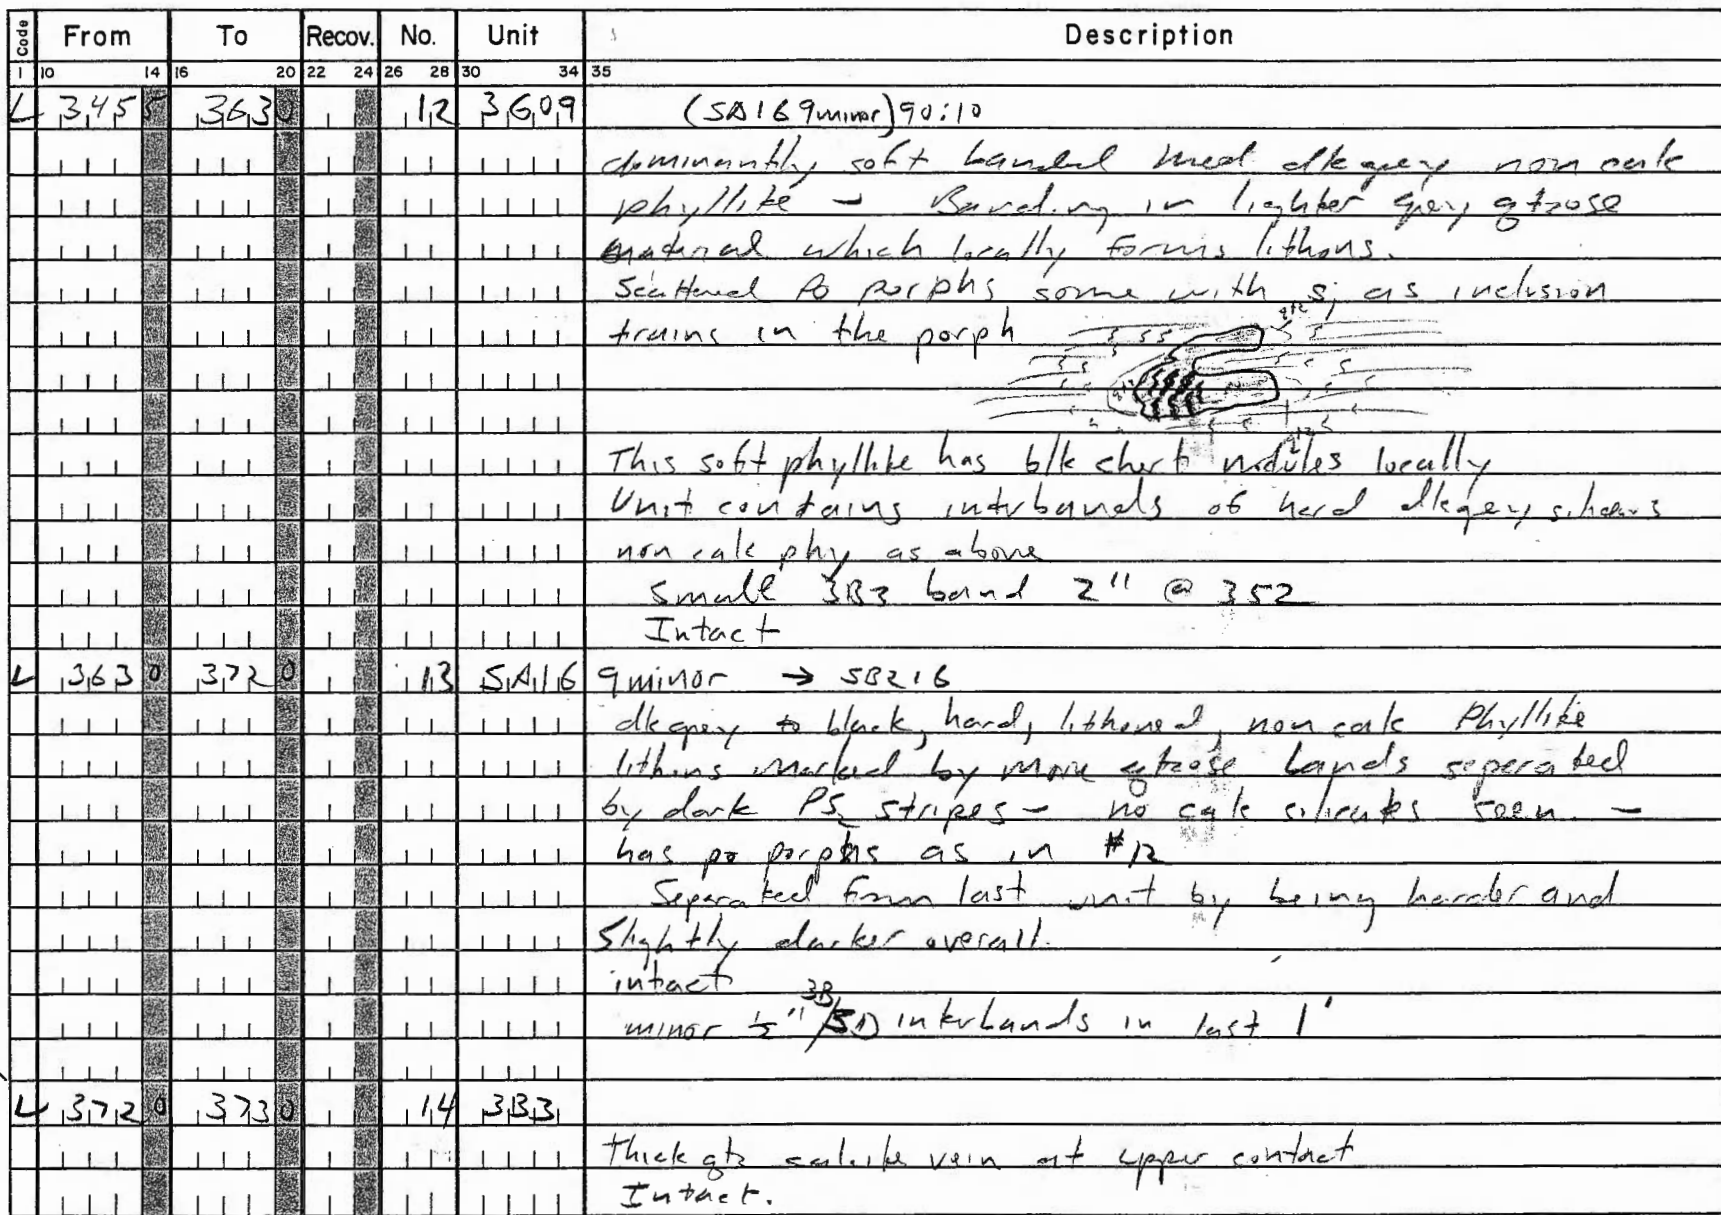 Code From To Recov. No. Unit Description
1 10 14 16 20 22 24 26 28 30 34 35
L 345 5 363 0 12 3G09 (5A16 9minor) 90:10
dominantly soft banded med dkgrey non calc
phyllite - Banding in lighter grey qtzose
material which locally forms lithons.
Scattered Po porphs some with Si as inclusion
trains in the porph
qtz
qtz
qtz
This soft phyllite has blk chert nodules locally
Unit contains interbands of hard dkgrey siliceous
non calc phy as above
small 3B3 band 2" @ 352
Intact
L 363 0 372 0 13 5A16 9minor → 5B216
dkgrey to black, hard, lithoned, non calc Phyllite
lithons marked by more qtzose bands seperated
by dark PS2 stripes - no calc silicates seen -
has po porphs as in #12
Seperated from last unit by being harder and
Slightly darker overall.
intact
minor ½" 3B/5D interbands in last 1'
L 372 0 373 0 14 3B3
Thick qtz calcite vein at upper contact
Intact.